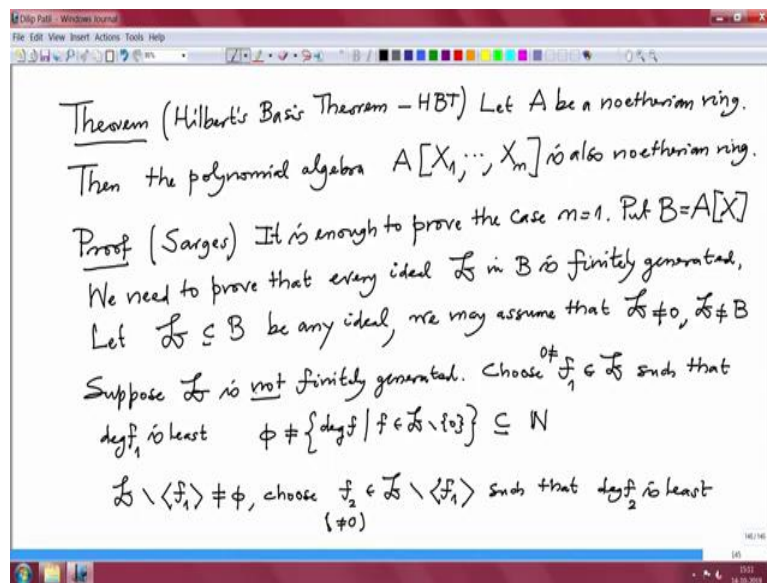 Dilip Patil - Windows Journal
File Edit View Insert Actions Tools Help
Theorem (Hilbert's Basis Theorem - HBT) Let A be a noetherian ring.
Then the polynomial algebra A[X₁,…,Xₘ] is also noetherian ring.
Proof (Sarges) It is enough to prove the case m=1. Put B=A[X]
We need to prove that every ideal 𝔟 in B is finitely generated,
Let 𝔟 ⊆ B be any ideal, we may assume that 𝔟≠0, 𝔟≠B
Suppose 𝔟 is not finitely generated. Choose 0≠f₁ ∈ 𝔟 such that
deg f₁ is least ϕ ≠ {deg f | f ∈ 𝔟∖{0}} ⊆ ℕ
𝔟∖⟨f₁⟩ ≠ ϕ, choose f₂ ∈ 𝔟∖⟨f₁⟩ such that deg f₂ is least
(≠0)
146/146
145
15:51